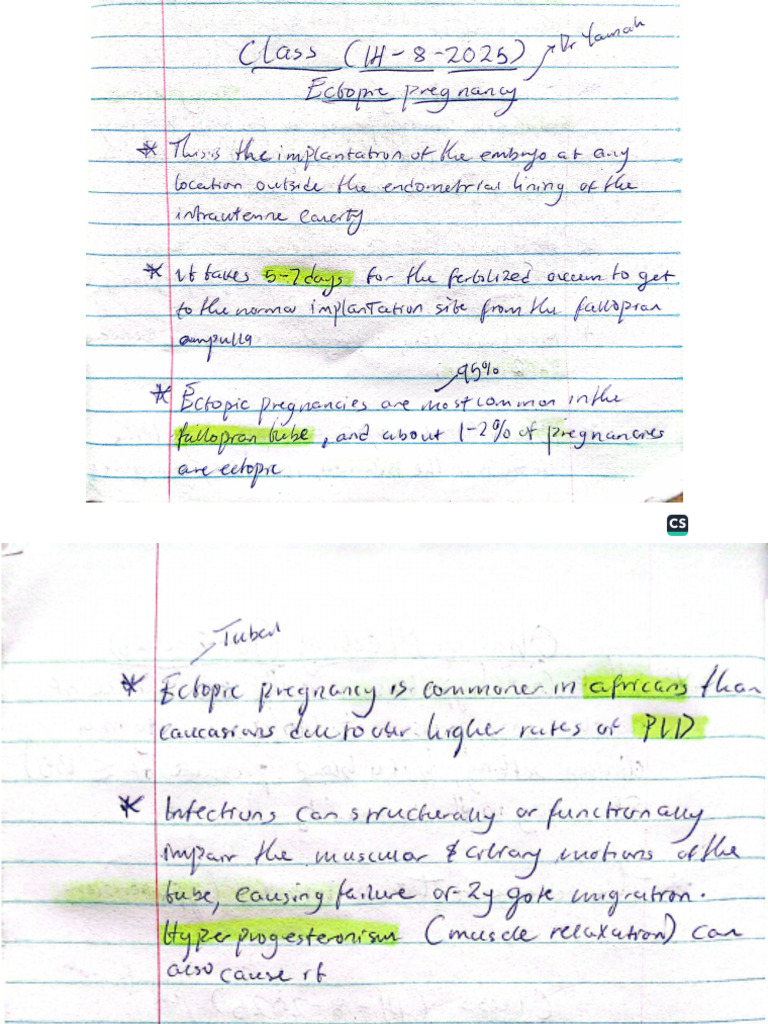 Class (14-8-2025) Dr Yannah
Ectopic pregnancy
* This is the implantation of the embryo at any
location outside the endometrial lining of the
intrauterine cavity
* It takes 5-7 days for the fertilized ovum to get
to the normal implantation site from the fallopian
ampulla
95%
* Ectopic pregnancies are most common in the
fallopian tube, and about 1-2% of pregnancies
are ectopic
CS
Tubal
* Ectopic pregnancy is commoner in africans than
caucasians due to our higher rates of PID
* Infections can structurally or functionally
impair the muscular & ciliary motions of the
tube, causing failure of zygote migration.
Hyperprogesteronism (muscle relaxation) can
also cause it